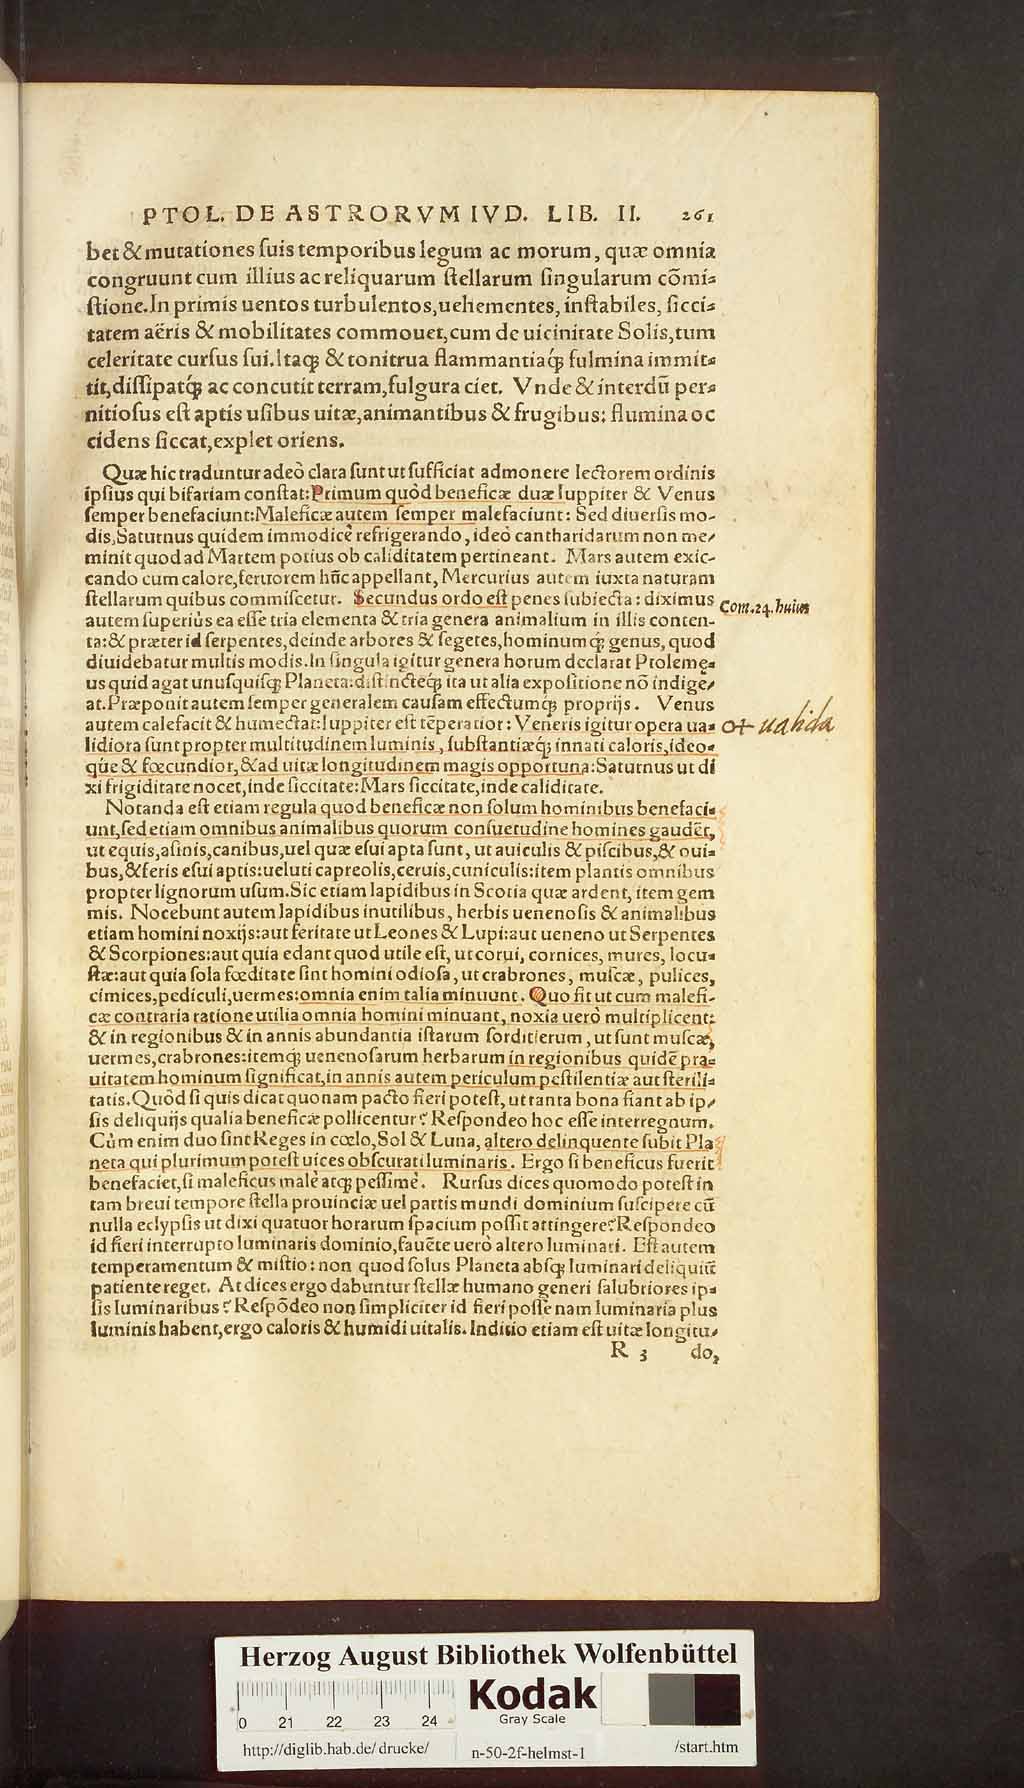 PTOL. DE ASTRORVM IVD. LIB. II. 261
bet & mutationes suis temporibus legum ac morum, quæ omnia
congruunt cum illius ac reliquarum stellarum singularum cõmi-
stione. In primis uentos turbulentos, uehementes, instabiles, sicci-
tatem aëris & mobilitates commouet, cum de uicinitate Solis, tum
celeritate cursus sui. Itaq; & tonitrua flammantiaq́; fulmina immit-
tit, dissipatq́; ac concutit terram, fulgura ciet. Vnde & interdũ per-
nitiosus est aptis usibus uitæ, animantibus & frugibus: flumina oc
cidens siccat, explet oriens.
Quæ hic traduntur adeò clara sunt ut sufficiat admonere lectorem ordinis
ipsius qui bifariam constat: Primum quòd beneficæ duæ Iuppiter & Venus
semper benefaciunt: Maleficæ autem semper malefaciunt: Sed diuersis mo-
dis, Saturnus quidem immodicè refrigerando, ideò cantharidarum non me-
minit quod ad Martem potius ob caliditatem pertineant. Mars autem exic-
cando cum calore, feruorem hũc appellant, Mercurius autem iuxta naturam
stellarum quibus commiscetur. Secundus ordo est penes subiecta: diximus
Com. 24. huius
autem superiùs ea esse tria elementa & tria genera animalium in illis conten-
ta: & præter id serpentes, deinde arbores & segetes, hominumq́; genus, quod
diuidebatur multis modis. In singula igitur genera horum declarat Ptolemę-
us quid agat unusquisq; Planeta: distincteq́; ita ut alia expositione nõ indige-
at. Præponit autem semper generalem causam effectumq́; proprijs. Venus
autem calefacit & humectat: Iuppiter est tẽperatior: Veneris igitur opera ua-
ualida
lidiora sunt propter multitudinem luminis, substantiæq́; innati caloris, ideo-
q́ue & fœcundior, & ad uitæ longitudinem magis opportuna: Saturnus ut di
xi frigiditate nocet, inde siccitate: Mars siccitate, inde caliditate.
Notanda est etiam regula quod beneficæ non solum hominibus benefaci-
unt, sed etiam omnibus animalibus quorum consuetudine homines gaudẽt,
ut equis, asinis, canibus, uel quæ esui apta sunt, ut auiculis & piscibus, & oui-
bus, & feris esui aptis: ueluti capreolis, ceruis, cuniculis: item plantis omnibus
propter lignorum usum. Sic etiam lapidibus in Scotia quæ ardent, item gem
mis. Nocebunt autem lapidibus inutilibus, herbis uenenosis & animalibus
etiam homini noxijs: aut feritate ut Leones & Lupi: aut ueneno ut Serpentes
& Scorpiones: aut quia edant quod utile est, ut corui, cornices, mures, locu-
stæ: aut quia sola fœditate sint homini odiosa, ut crabrones, muscæ, pulices,
cimices, pediculi, uermes: omnia enim talia minuunt. Quo fit ut cum malefi-
cæ contraria ratione utilia omnia homini minuant, noxia uerò multiplicent:
& in regionibus & in annis abundantia istarum sorditierum, ut sunt muscæ,
uermes, crabrones: itemq́; uenenosarum herbarum in regionibus quidẽ pra-
uitatem hominum significat, in annis autem periculum pestilentiæ aut sterili-
tatis. Quòd si quis dicat quonam pacto fieri potest, ut tanta bona fiant ab ip-
sis deliquijs qualia beneficæ pollicentur? Respondeo hoc esse interregnum.
Cùm enim duo sint Reges in cœlo, Sol & Luna, altero delinquente subit Pla
neta qui plurimum potest uices obscurati luminaris. Ergo si beneficus fuerit
benefaciet, si maleficus malè atq; pessimè. Rursus dices quomodo potest in
tam breui tempore stella prouinciæ uel partis mundi dominium suscipere cũ
nulla eclypsis ut dixi quatuor horarum spacium possit attingere? Respondeo
id fieri interrupto luminaris dominio, fauẽte uerò altero luminari. Est autem
temperamentum & mistio: non quod solus Planeta absq; luminari deliquiũ
patiente reget. At dices ergo dabuntur stellæ humano generi salubriores ip-
sis luminaribus? Respõdeo non simpliciter id fieri posse nam luminaria plus
luminis habent, ergo caloris & humidi uitalis. Inditio etiam est uitæ longitu-
R 3 do,
Herzog August Bibliothek Wolfenbüttel
0 21 22 23 24
Kodak
Gray Scale
http://diglib.hab.de/drucke/ n-50-2f-helmst-1 /start.htm